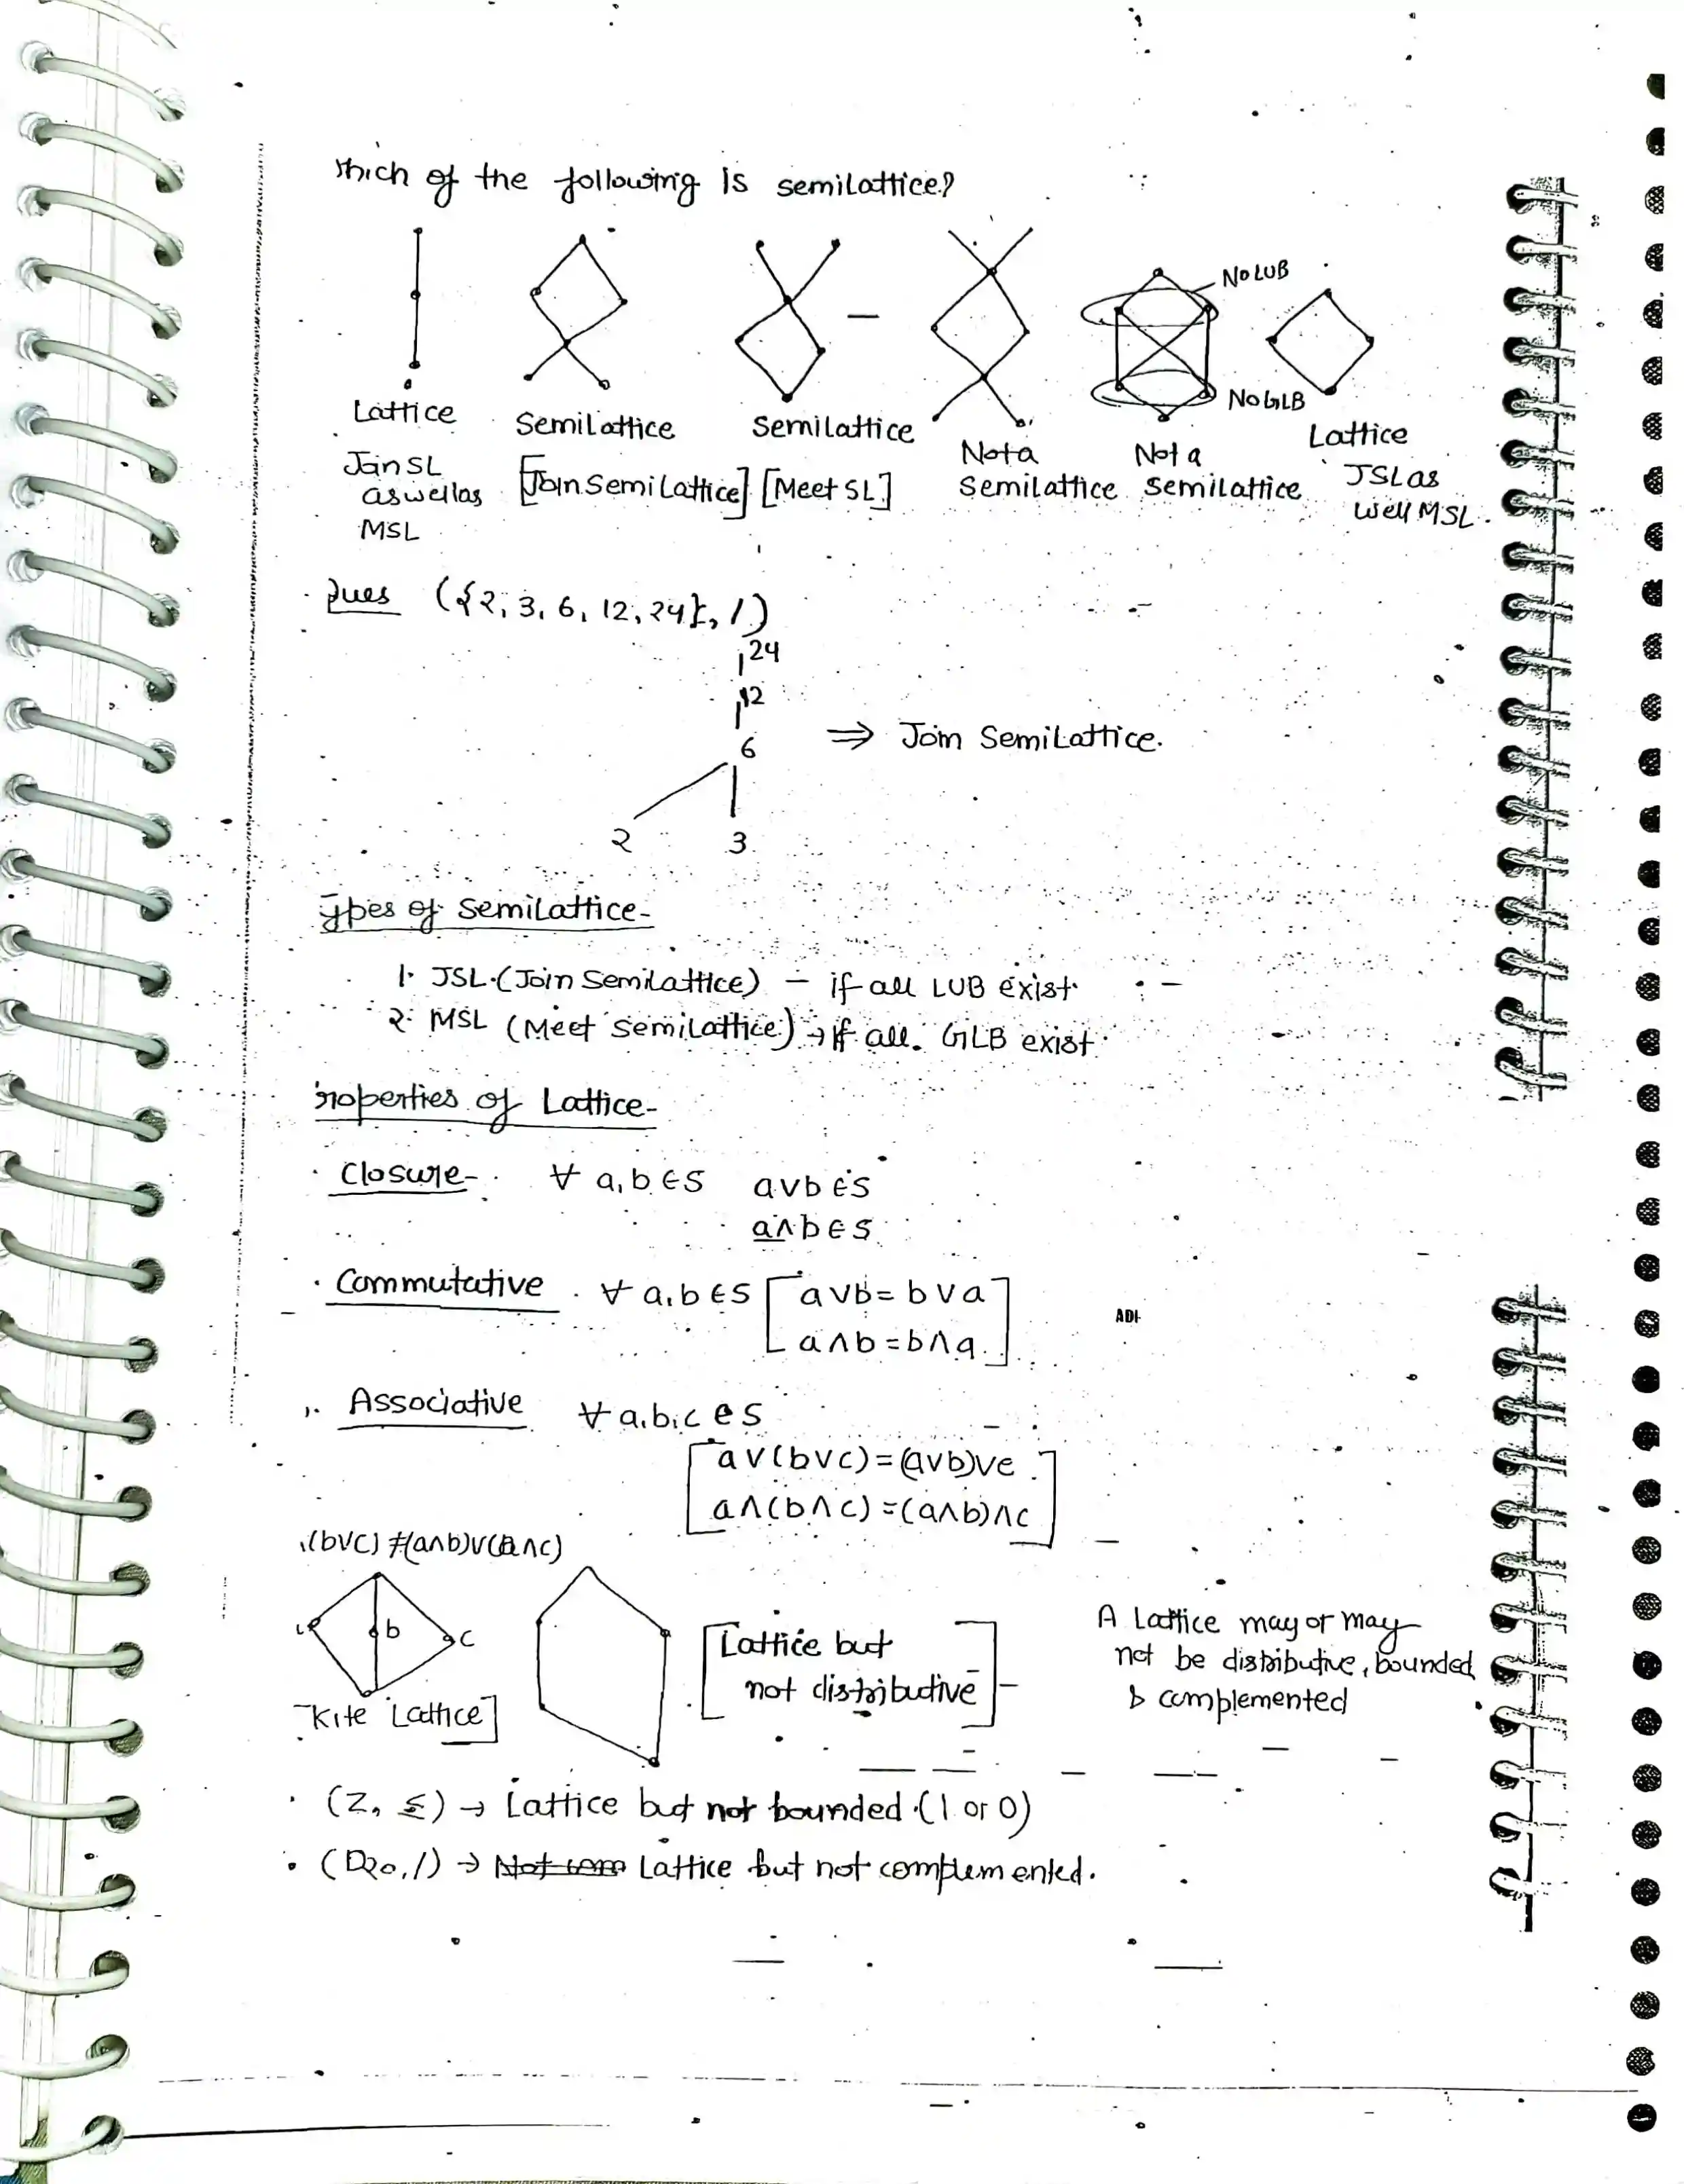 hich of the following is semilattice?
No LUB
No GLB
Lattice
Join SL
as well as
MSL
Semilattice
[Join Semilattice]
Semilattice
[Meet SL]
Not a
Semilattice
Not a
Semilattice
Lattice
JSL as
well MSL.
Ques ({2, 3, 6, 12, 24}, /)
24
12
6 ⇒ Join Semilattice.
2 3
ypes of Semilattice-
1. JSL (Join Semilattice) - if all LUB exist.
2. MSL (Meet Semilattice) → if all GLB exist.
roperties of Lattice-
Closure- ∀ a,b ∈ S a∨b ∈ S
a∧b ∈ S
Commutative ∀ a,b ∈ S [a∨b = b∨a
a∧b = b∧a]
ADI
Associative ∀ a,b,c ∈ S
[a∨(b∨c) = (a∨b)∨c
a∧(b∧c) = (a∧b)∧c]
(b∨c) ≠ (a∧b)∨(a∧c)
b
c
[Kite Lattice]
[Lattice but
not distributive]
A Lattice may or may
not be distributive, bounded
& complemented
(Z, ≤) → Lattice but not bounded (1 or 0)
(D20, /) → Not com Lattice but not complemented.